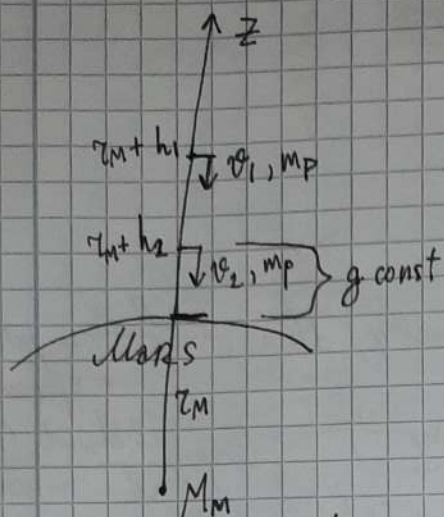 z
r_M + h_1
v_1, m_p
r_M + h_2
v_2, m_p
g const
Mars
r_M
M_M